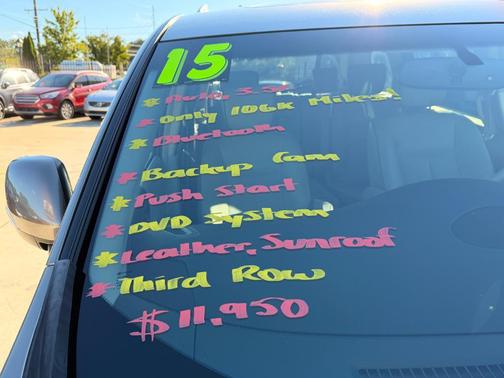 15
* Auto, 3.5L
* Only 106K Miles!
* Bluetooth
* Backup Cam
* Push Start
* DVD System
* Leather, Sunroof
* Third Row
$11,950